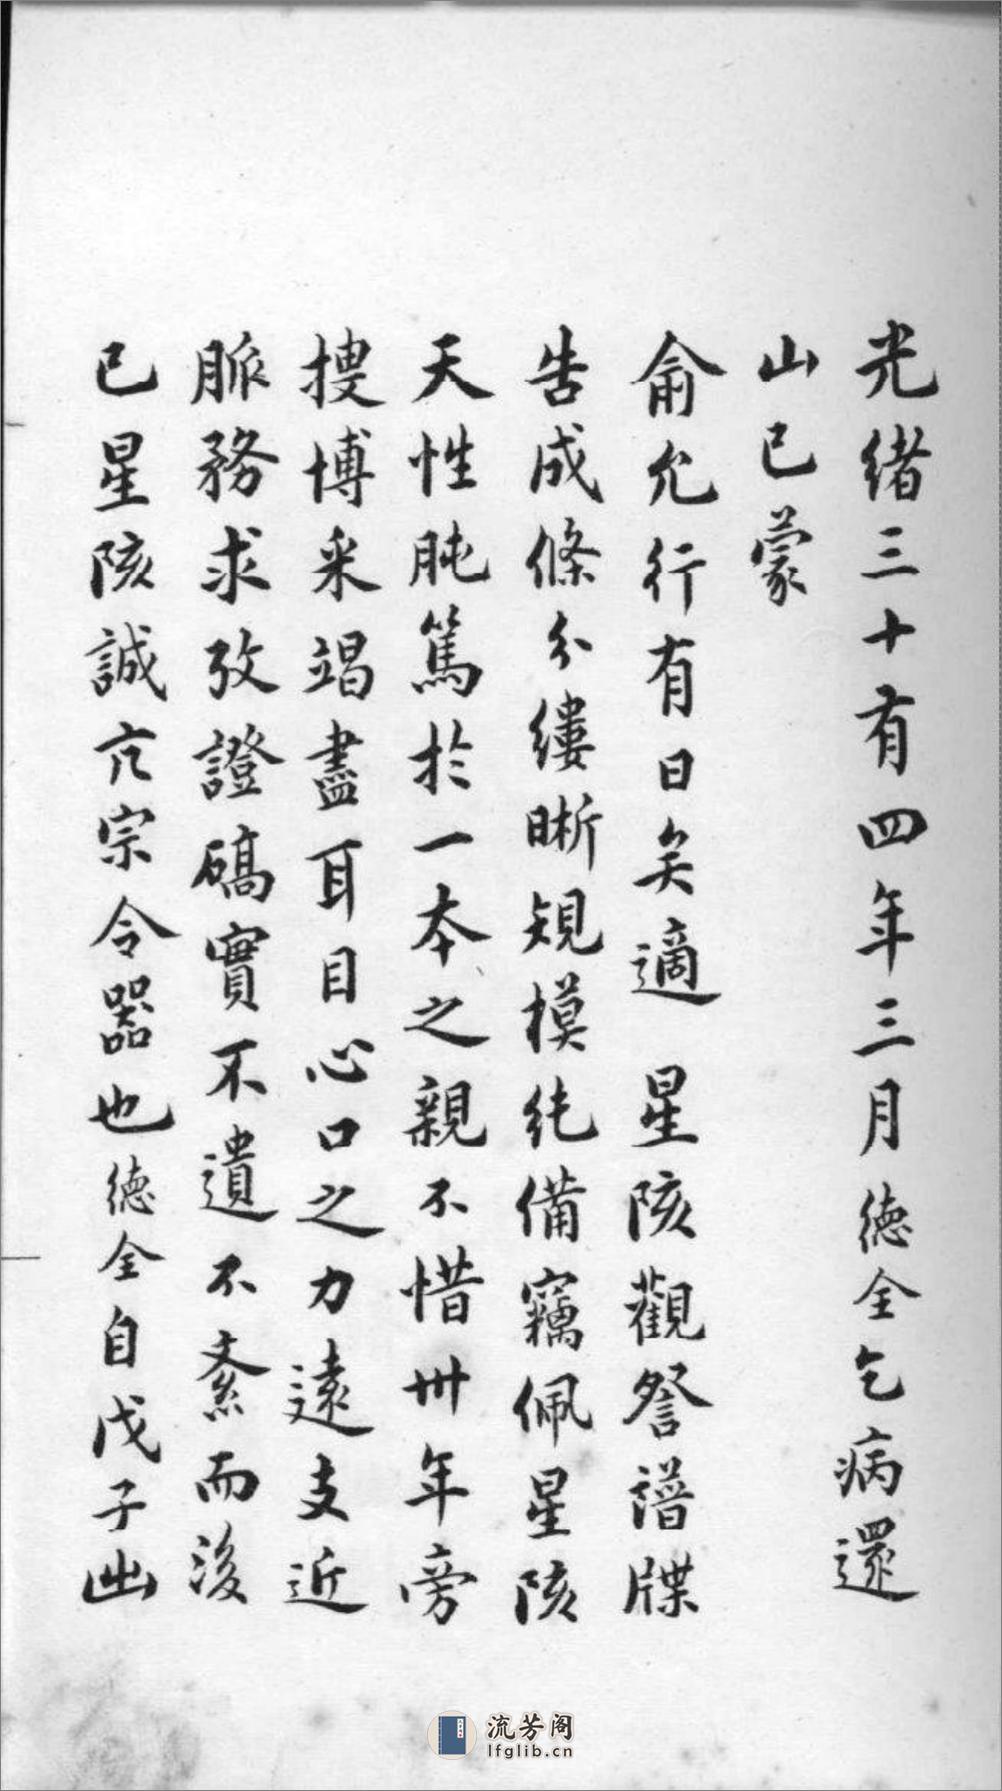 光緒三十有四年三月德全乞病還
山已蒙
俞允行有日矣適 星陔觀詧譜牒
告成條分縷晰規模純備竊佩星陔
天性肫篤於一本之親不惜卅年旁
搜博采竭盡耳目心口之力遠支近
脈務求攷證礭實不遺不紊而後
已星陔誠亢宗令器也德全自戊子出
流芳阁
lfglib.cn